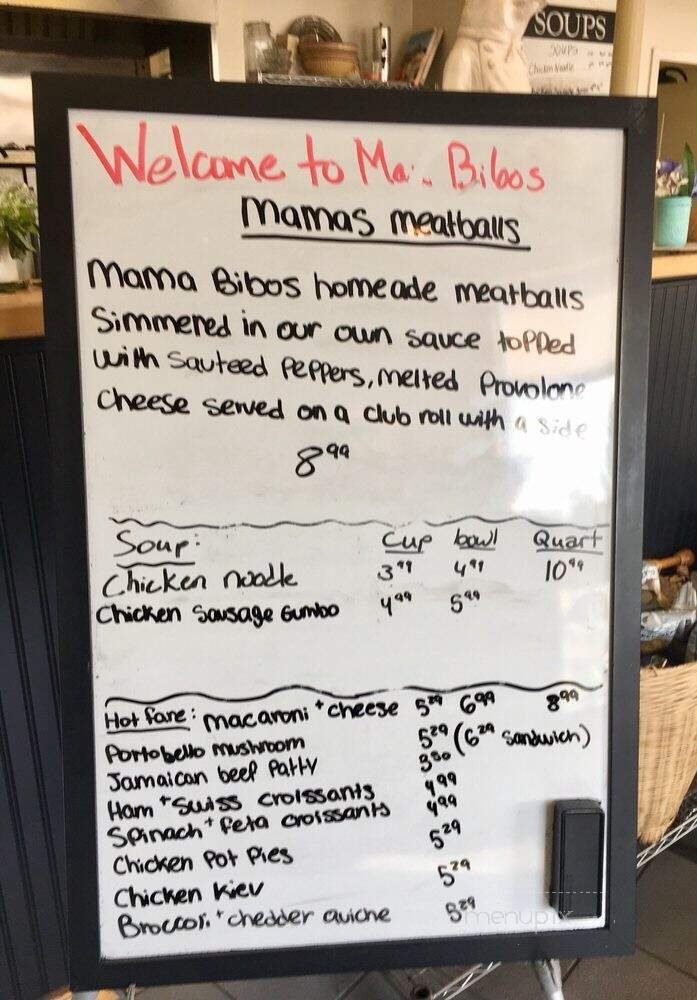 SOUPS
SOUPS
Chicken Noodle
Welcome to Ma Bibos
Mamas meatballs
Mama Bibos homeade meatballs
Simmered in our own sauce topped
with Sauteed Peppers, melted Provolone
Cheese served on a club roll with a side
8 99
Soup: Cup bowl Quart
Chicken noodle 3 99 4 99 10 99
Chicken Sausage Gumbo 4 99 5 99
Hot fare: macaroni + cheese 5 29 6 99 8 99
Portobello mushroom 5 29 (6 29 Sandwich)
Jamaican beef Patty 3 80
Ham + Swiss croissants 4 99
Spinach + feta croissants 4 99
Chicken Pot Pies 5 29
Chicken Kiev 5 29
Broccoli + chedder quiche 5 29
menupix